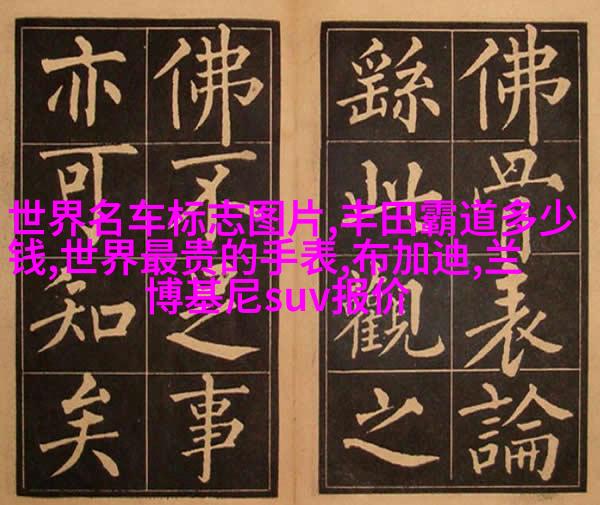 世界名车标志图片,丰田霸道多少
钱,世界最贵的手表,布加迪,兰
博基尼suv报价
佛骨表論
繇此觀之
佛不事
亦可知矣